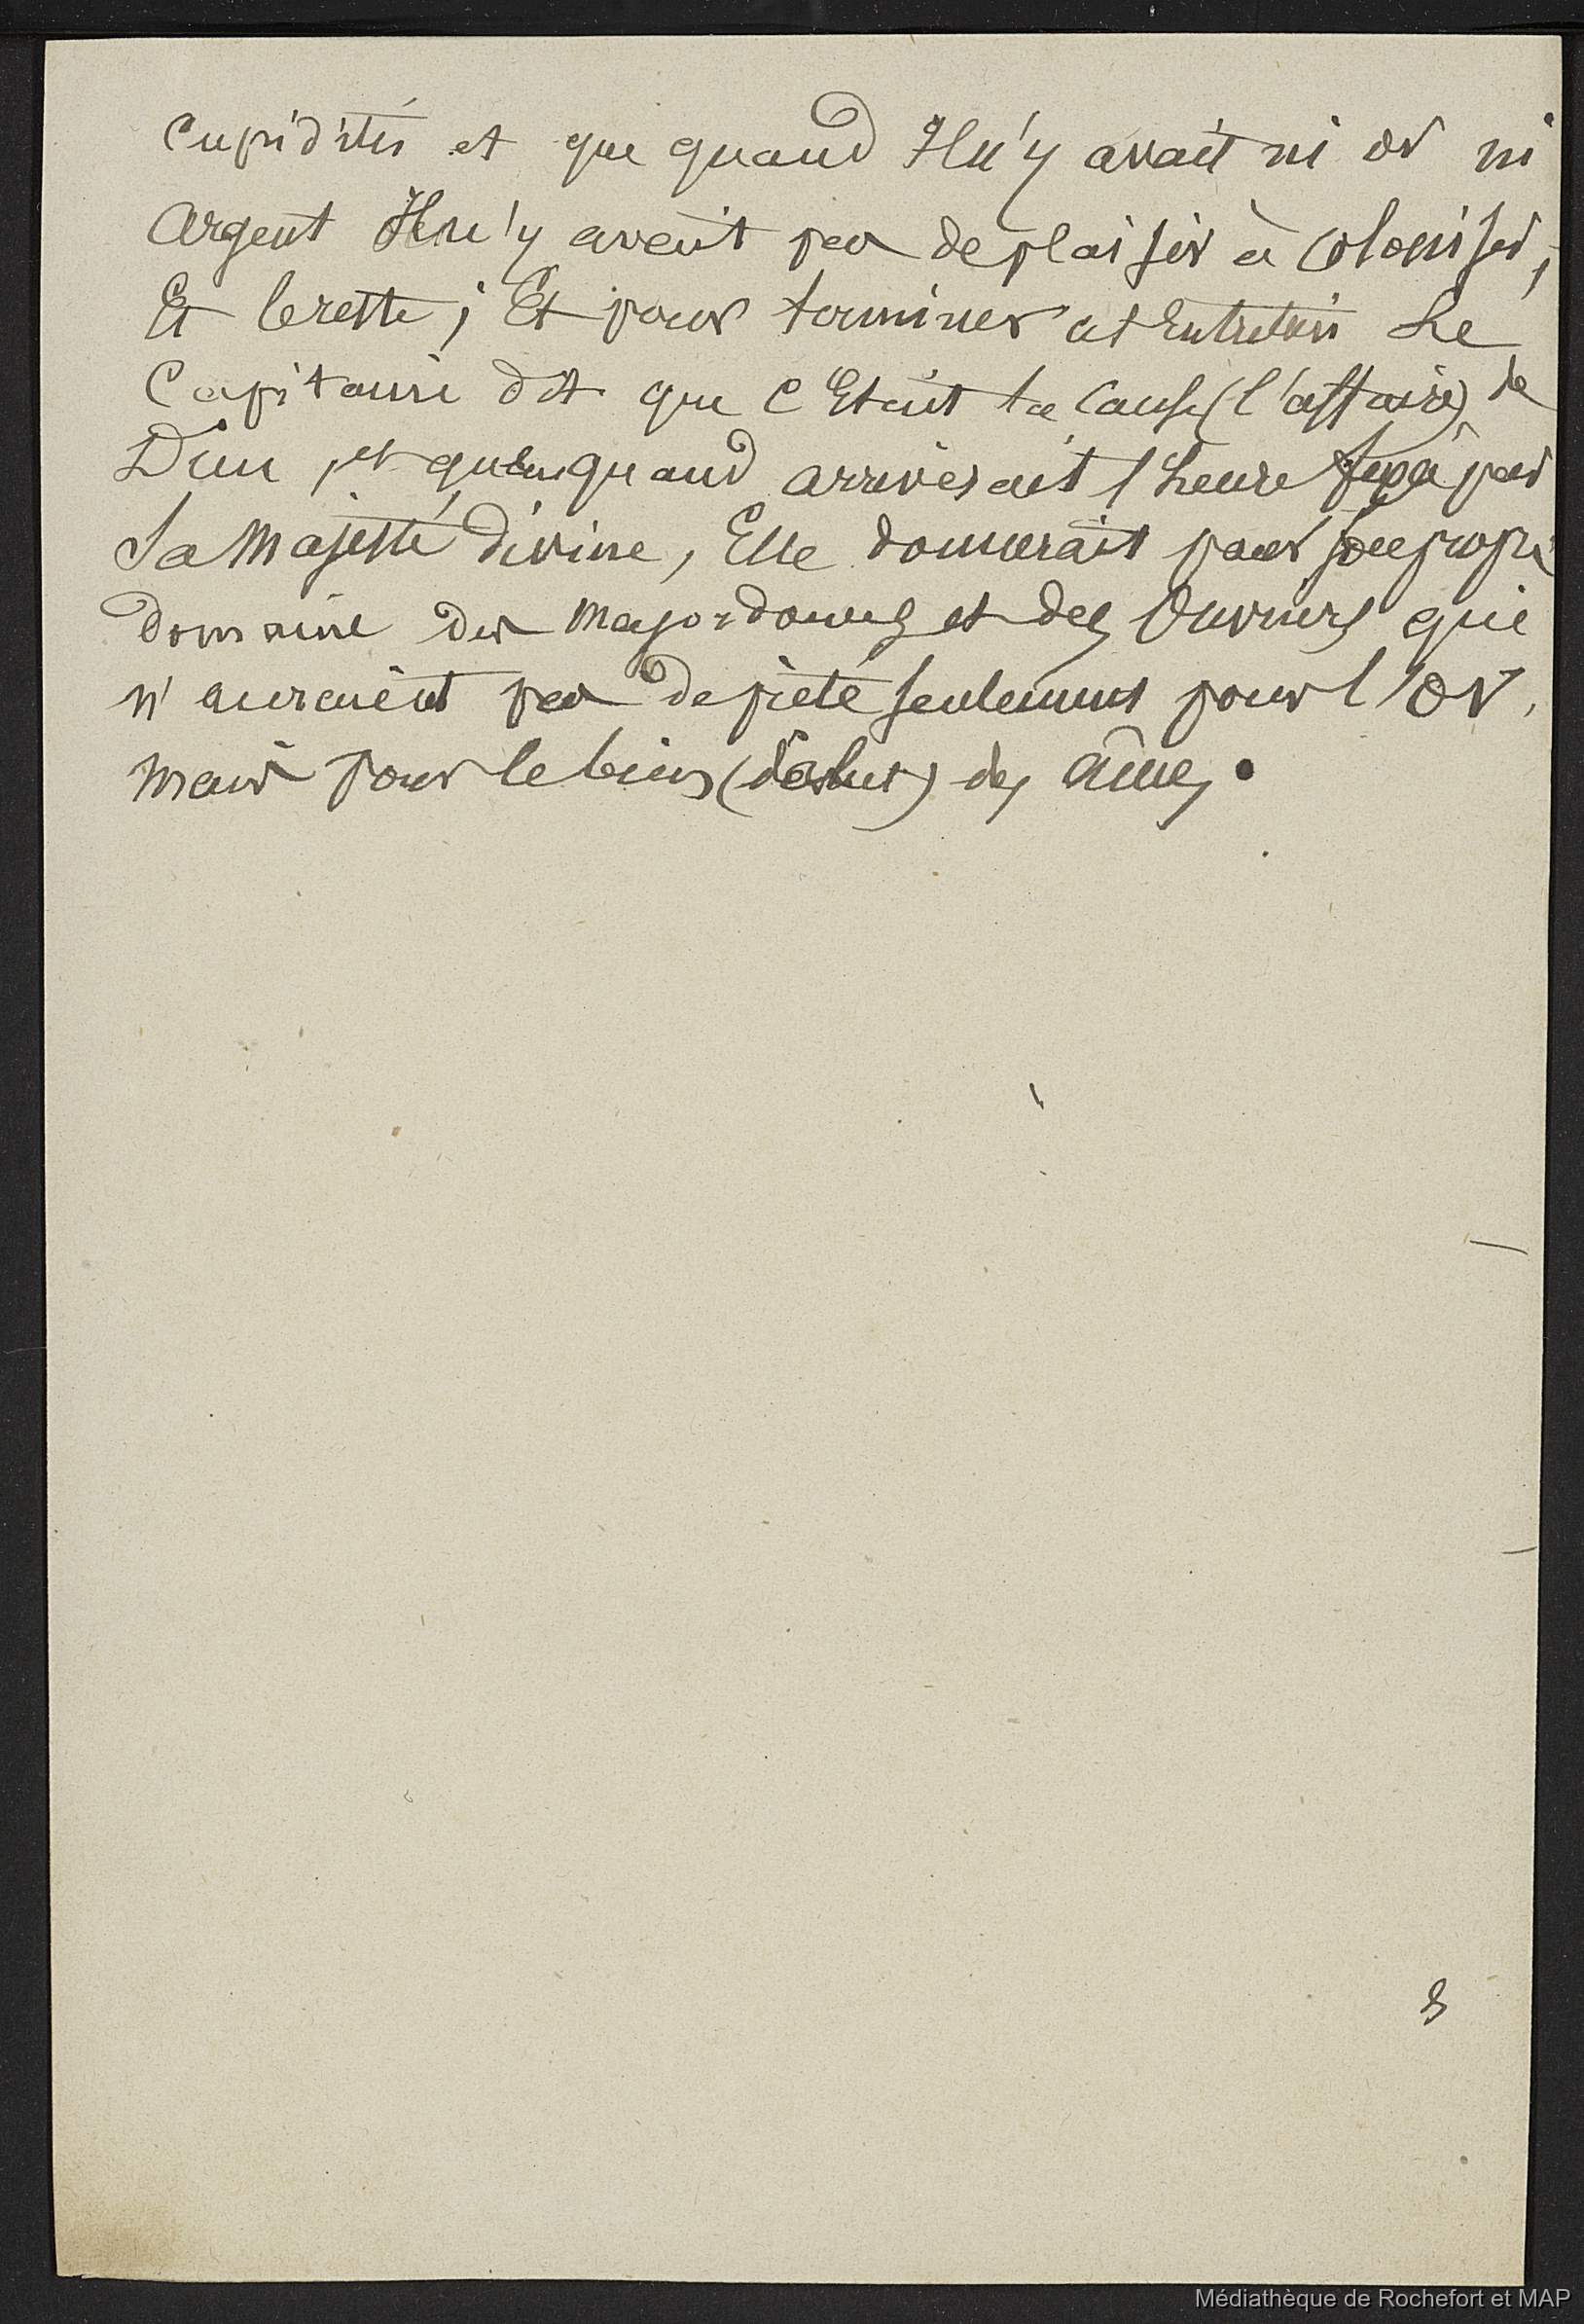 Cupidités et que quand Il n'y avait ni or ni
Argent Il n'y avait pas de plaisir à Coloniser,
Et le reste ; Et pour terminer cet Entretien Le
Capitaine dit que C'Etait la Cause (l'affaire) de
Dieu, et que quand arriverait l'heure fixée par
Sa Majesté divine, Elle donnerait pour son propre
domaine des Majordomes et des Ouvriers qui
n'auraient pas de piété seulement pour l'Or,
Mais pour le bien (le salut) des âmes.
Médiathèque de Rochefort et MAP